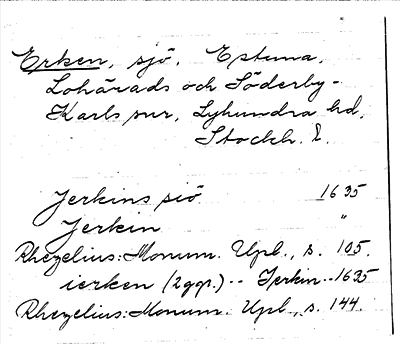 Erken, sjö. Estuna,
Lohärads och Söderby-
Karls snr, Lyhundra hd,
Stockh. l.
Jerkins siö 1635
Jerkin "
Rhezelius: Monum. Upl., s. 105.
ierken (2 ggr.) -- Jerkin -- 1635
Rhezelius: Monum. Upl., s. 144.